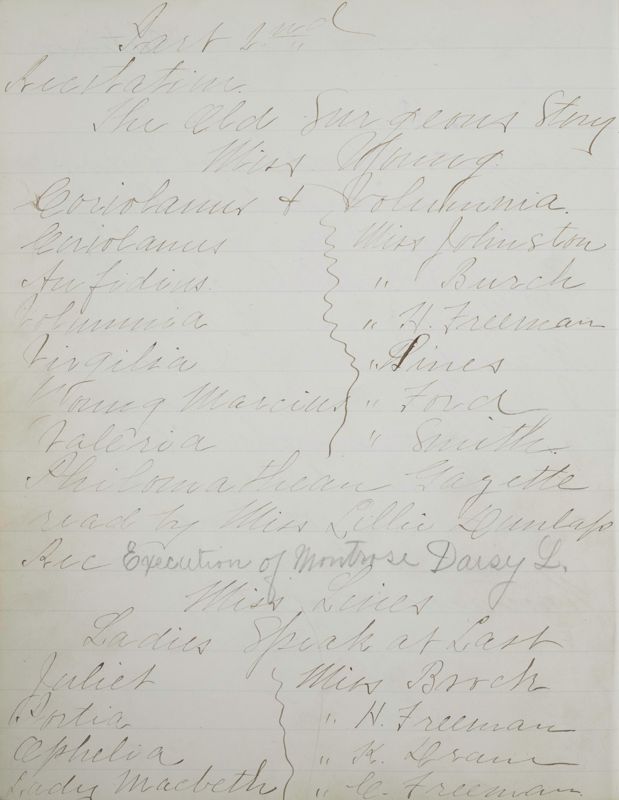 Part 2nd
Recitation.
The Old Surgeons Story
Miss Young.
Coriolanus & Volumnia.
Coriolanus Miss Johnston
Aufidius. " Burch
Volumnia " H. Freeman
Virgilia " Pines
Young Marcius " Ford
Valeria " Smith.
Philomathean Gazette
read by Miss Lillie Dunlap
Rec Execution of Montrose Daisy L.
Miss Lines
Ladies Speak at Last
Juliet Miss Brock
Portia " H. Freeman
Ophelia " K.
Lady Macbeth " C. Freeman.